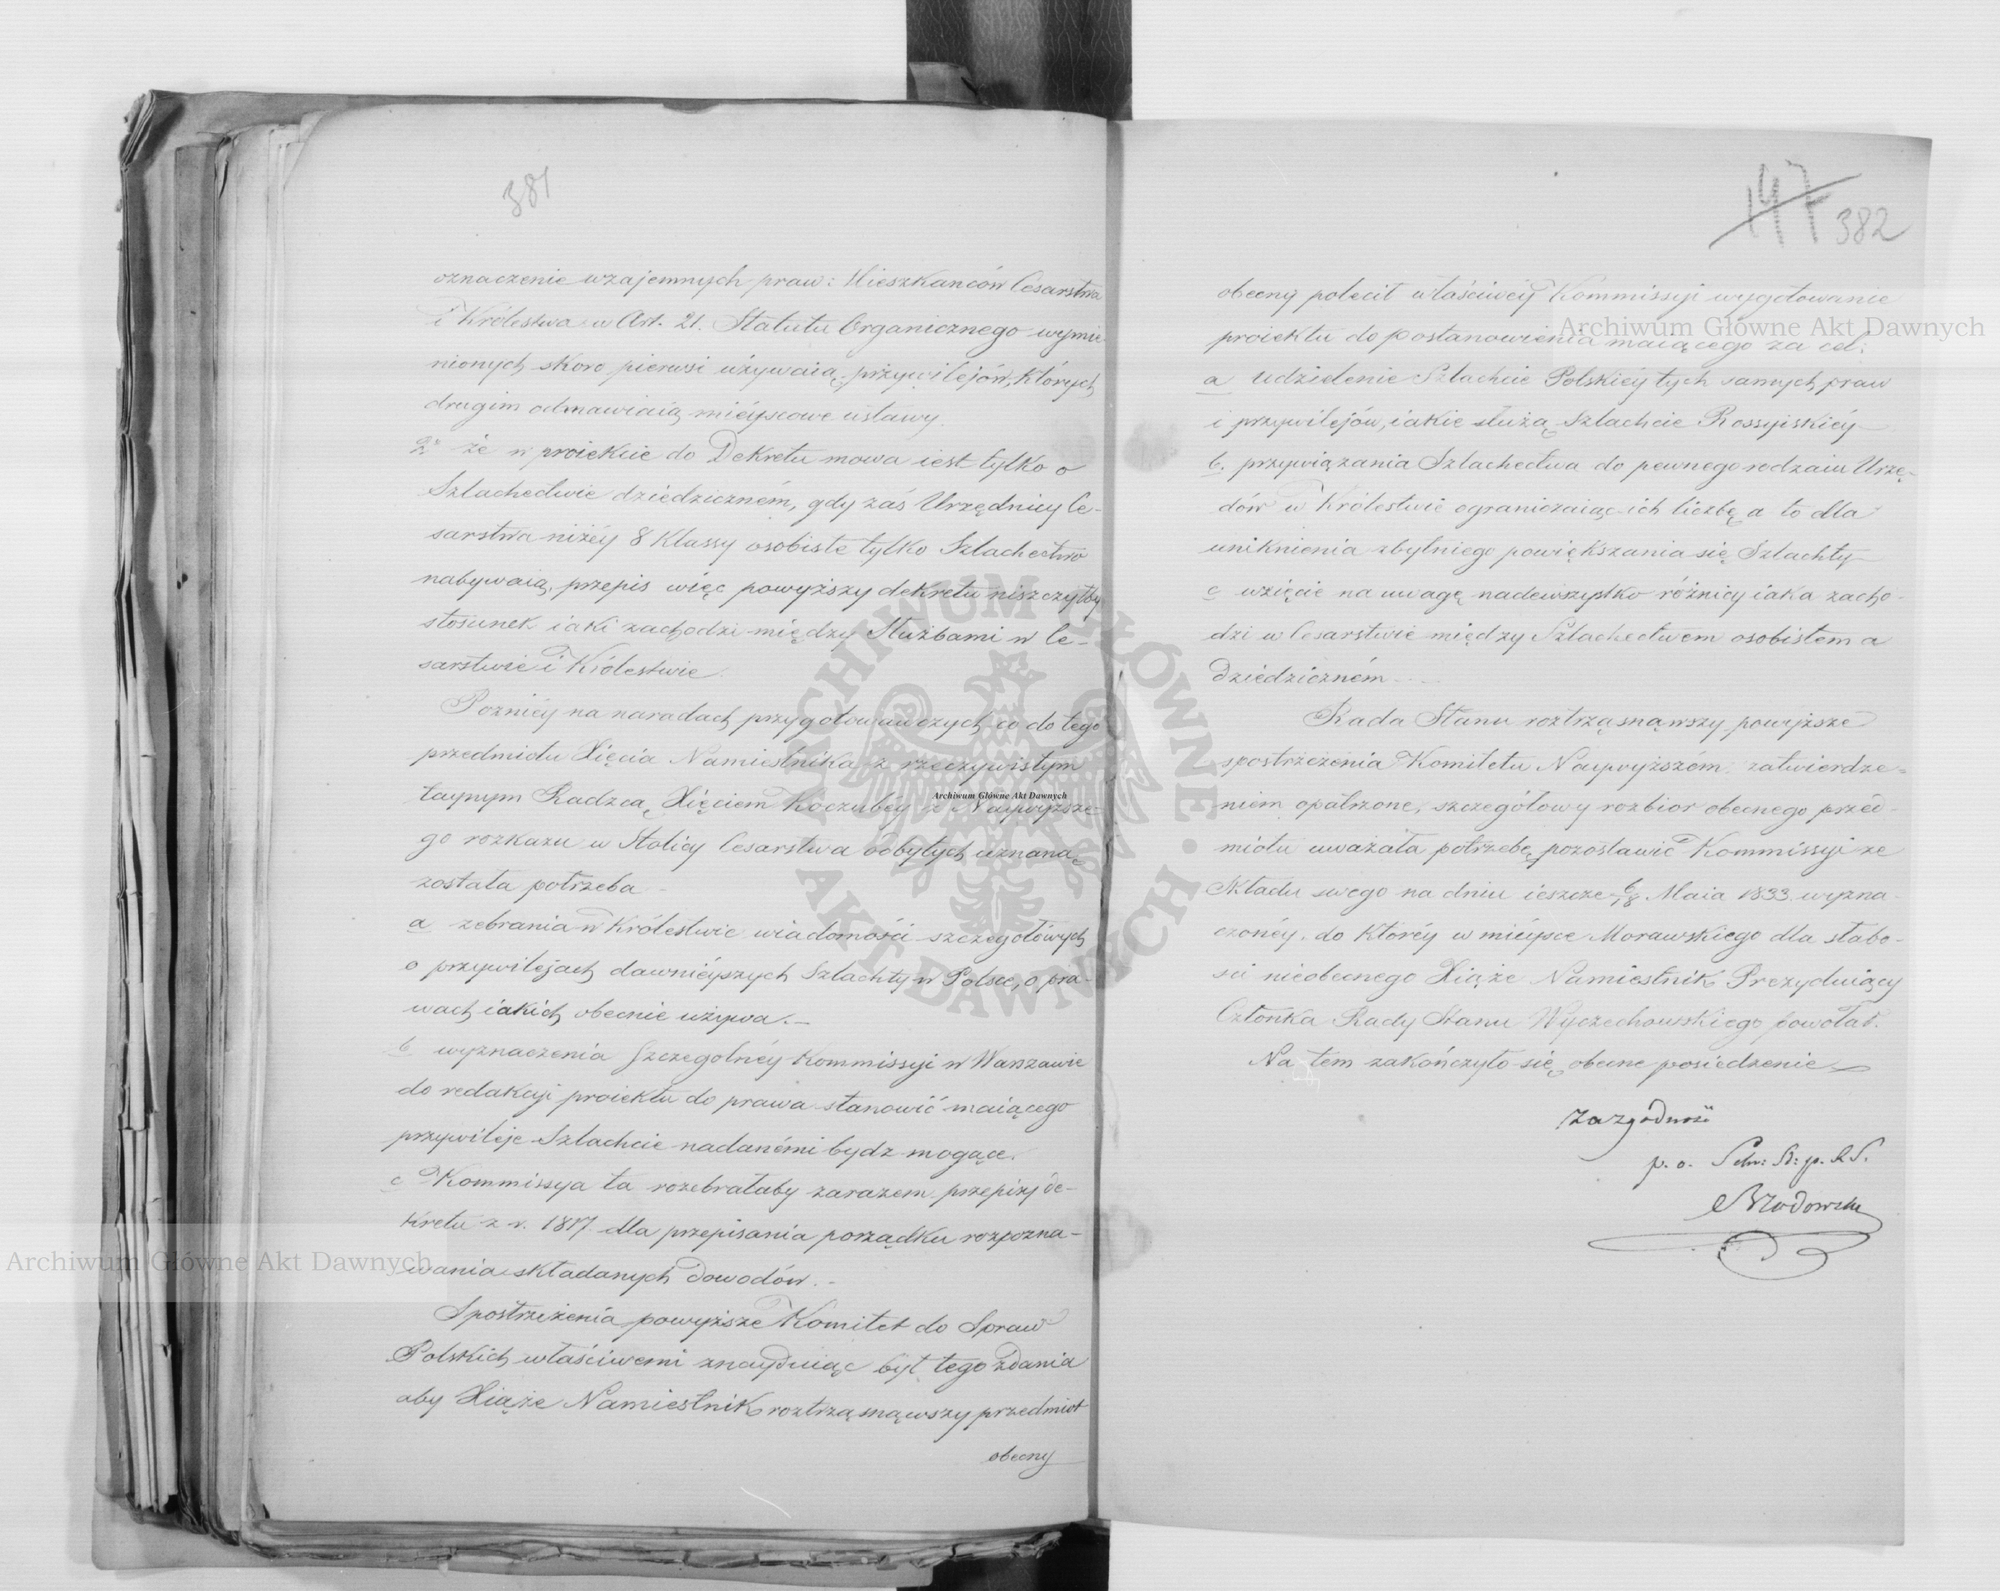 381
oznaczenie wzajemnych praw: Mieszkańców Cesarstwa
i Królestwa w Art. 21. Statutu Organicznego wymie-
nionych skoro pierwsi używaią przywilejów, których
drugim odmawiaią mieyscowe ustawy.
2o że w proiekcie do Dekretu mowa iest tylko o
Szlachectwie dziedziczném, gdy zaś Urzędnicy Ce-
sarstwa niżéy 8 Klassy osobiste tylko Szlachectwo
nabywaią, przepis więc powyższy dekretu niszczyłby
stosunek iaki zachodzi między Służbami w Ce-
sarstwie i Królestwie.
Poźniéy na naradach przygotowawczych co do tego
przedmiotu Xięcia Namiestnika z rzeczywistym
taynym Radzcą Xięciem Koczubéy z Naywyższe-
go rozkazu w Stolicy Cesarstwa odbytych uznaną
została potrzeba
a zebrania w Królestwie wiadomości szczegółowych
o przywilejach dawniéyszych Szlachty w Polsce, o pra-
wach iakich obecnie używa.
b wyznaczenia Szczególnéy Kommissyi w Warszawie
do redakcyi proiektu do prawa stanowić maiącego
przywileje Szlachcie nadanémi bydz mogące.
c Kommissya ta rozebrałaby zarazem przepisy de-
kretu z r. 1817 dla przepisania porządku rozpozna-
wania składanych dowodów.
Spostrzeżenia powyższe Komitet do Spraw
Polskich właściwemi znayduiąc był tego zdania
aby Xiąże Namiestnik roztrząsnąwszy przedmiot
obecny
147 382
obecny polecił właściwéy Kommissyi wygotowanie
proiektu do postanowienia maiącego za cel:
a udzielenie Szlachcie Polskiéy tych samych praw
i przywilejów, iakie służą Szlachcie Rossyiskiéy
b. przywiązania Szlachectwa do pewnego rodzaiu Urzę-
dów w Królestwie ograniczaiąc ich liczbę a to dla
uniknienia zbytniego powiększania się Szlachty
c wzięcie na uwagę nadewszystko różnicy iaka zacho-
dzi w Cesarstwie między Szlachectwem osobistem a
dziedziczném
Rada Stanu roztrząsnąwszy powyższe
spostrzeżenia Komitetu Naywyższém zatwierdze-
niem opatrzone, szczegółowy rozbior obecnego przed-
miotu uważała potrzebę pozostawić Kommissyi ze
składu swego na dniu ieszcze 6/18 Maia 1833 wyzna-
czonéy, do któréy w mieysce Morawskiego dla słabo-
ści nieobecnego Xiąże Namiestnik Prezyduiący
Członka Rady Stanu Wyczechowskiego powołał.
Na tém zakończyło się obecne posiedzenie
Za zgodność
p. o. Sekr: St: p. R. S.
Brodowski
Archiwum Główne Akt Dawnych
Archiwum Główne Akt Dawnych
Archiwum Główne Akt Dawnych
ARCHIWUM GŁÓWNE AKT DAWNYCH